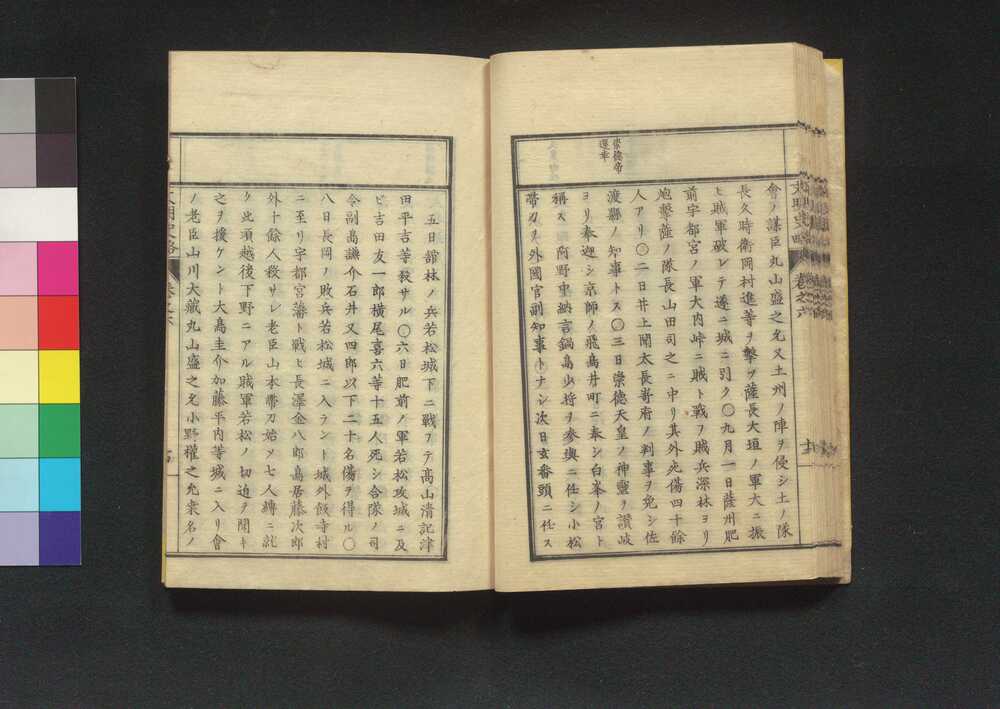 崇德帝
還幸
會ノ謀臣丸山盛之允又土州ノ陣ヲ侵シ土ノ隊
長久時衛岡村進等ヲ撃ツ薩長大垣ノ軍大ニ振
ヒ賊軍破レテ遂ニ城ニ引ク〇九月一日薩州肥
前宇都宮ノ軍大内峠ニ賊ト戰フ賊兵深林ヨリ
炮撃薩ノ隊長山田司之ニ中リ其外死傷四十餘
人アリ〇二日井上聞太長嵜府ノ判事ヲ免シ佐
渡縣ノ知事トス〇三日崇德天皇ノ神靈ヲ讃岐
ヨリ奉迎シ京師ノ飛鳥井町ニ奉シ白峯ノ宮ト
稱ス 阿野中納言鍋島少將ヲ參與ニ任シ小松
帶刀ヲ外國官副知事トナシ次日玄番頭ニ任ス
文明史略 卷之六
五日舘林ノ兵若松城下ニ戰ヲテ高山清記津
田平吉等殺サル〇六日肥前ノ軍若松攻城ニ及
ビ吉田友一郎横尾喜六等十五人死シ合隊ノ司
令副島謙介石井又四郎以下二十名傷ヲ得ル〇
八日長岡ノ敗兵若松城ニ入ラント城外飯寺村
ニ至リ宇都宮藩ト戰ヒ長澤金八郎島居藤次郎
外十餘人殺サレ老臣山本帶刀始メ七人縛ニ就
ク此項越後下野ニアル賊軍若松ノ切迫ヲ聞キ
之ヲ援ケント大鳥圭介加藤平内等城ニ入リ會
ノ老臣山川大藏丸山盛之允小野權之允衆名ノ